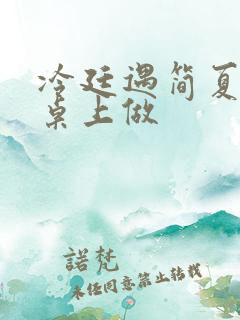 冷廷遇简夏
桌上做
諾梵
未经同意禁止转载